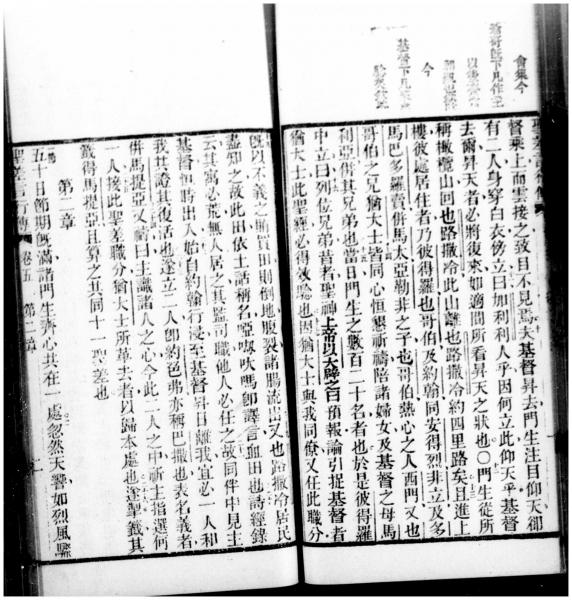 會集今
督乘上而雲接之致目不見焉夫基督昇去門生注目仰天卻
有二人身穿白衣傍立曰加利利人乎因何立此仰天乎基督
去爾昇天者必將復來如適間所看昇天之狀也○門生從所
稱橄欖山回也路撒冷此山離也路撒冷約四里路矣且進上
樓彼處居住者乃彼得羅也哥伯及約翰同安得烈非立及多
馬巴多羅賣併馬太亞勒非之子也哥伯熱心之人西門又也
哥伯之兄猶大士皆同心恒懇祈禱陪諸婦女及基督之母馬
利亞併其兄弟也當日門生之數百二十名者也於是彼得羅
中立曰列位兄弟昔者聖神上帝以大辟之口預報論引捉基督者
猶大士此聖經必得效驗也因猶大士與我同僚又任此職分
旣以不義之賄買田則倒地腹裂諸腸流出又也路撒冷居民
盡知之故此田依土話稱名亞
嗎卽譯言血田也詩經錄
云其寓必荒無人居之其監司職他人必任之故同伴中見主
基督恒時出入始自約翰行浸至基督昇日離我宜必一人和
我共證其復活也遂立二人卽約色弗亦稱巴撒也表名義者
併馬提亞又禱曰主識諸人之心今此二人之中祈主指選何
一人接此聖差職分猶大士所革去者以歸本處也遂掣籤其
籤得馬提亞且算之共同十一聖差也
第二章
五十日節期旣滿諸門生齊心共在一處忽然天響如烈風驟
卷五 第二章